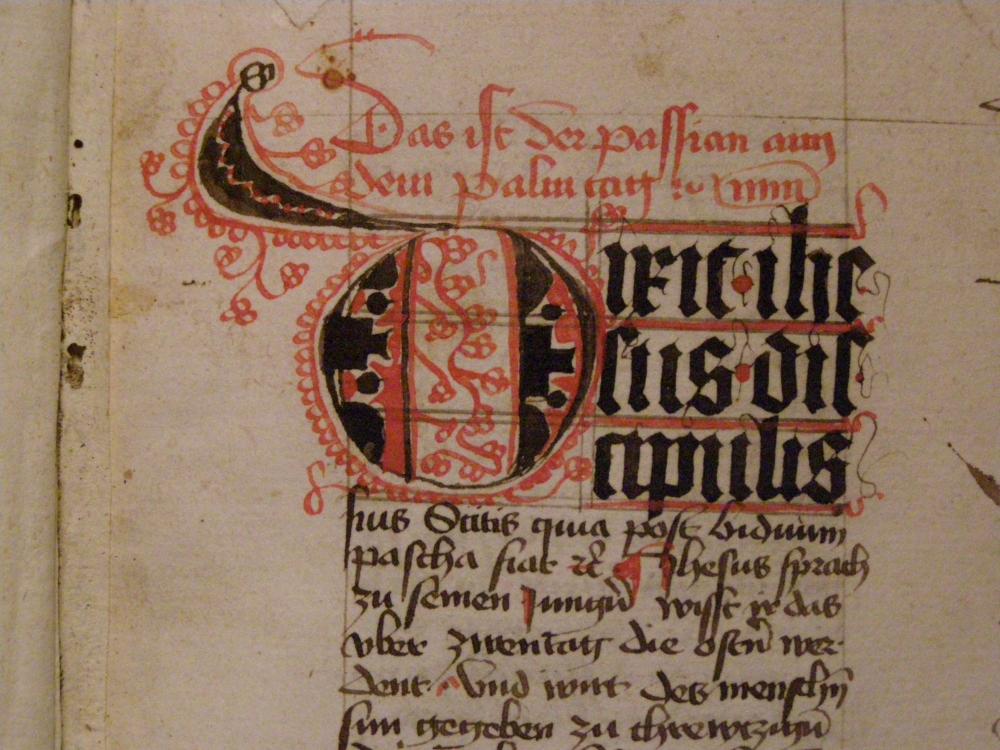 Das ist der passian ann
dem palm tag
Dixit ihe
sus dis
cipulis
suis Scitis quia post biduum
pascha fiat ⁊c̃ Jhesus sprach
zu seinen Jungn̄ wisst ir das
vber zwentag die ostn̄ wer
dent Vnd wirt des menschn̄
sun gegeben zu